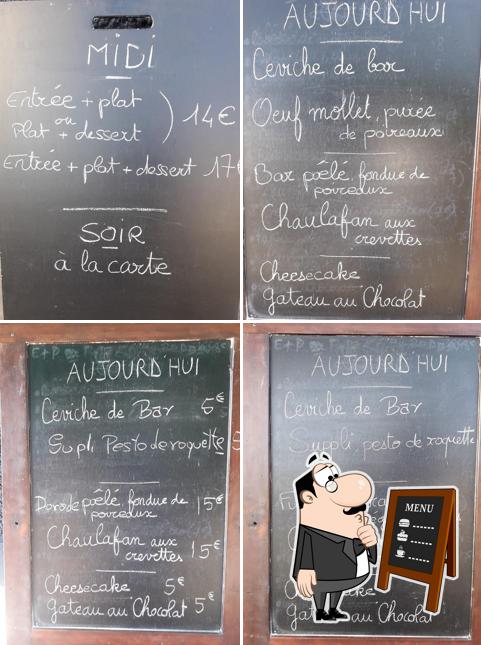 MIDI
Entrée + plat
ou
Plat + dessert
14€
Entrée + plat + dessert 17
SOIR
à la carte
AUJOURD'HUI
Ceviche de bar
Oeuf mollet, purée
de poireaux
Bar poêlé, fondue de
poireaux
Chaulafan aux
crevettes
Cheesecake
Gateau au Chocolat
AUJOURD'HUI
Ceviche de Bar 5€
Supli Pesto de roquette
Dorade poêlé, fondue de
poireaux 15€
Chaulafan aux
crevettes 15€
Cheesecake 5€
Gateau au Chocolat 5€
AUJOURD'HUI
Ceviche de Bar
Suppli, pesto de roquette
MENU
Gat au Chocolat